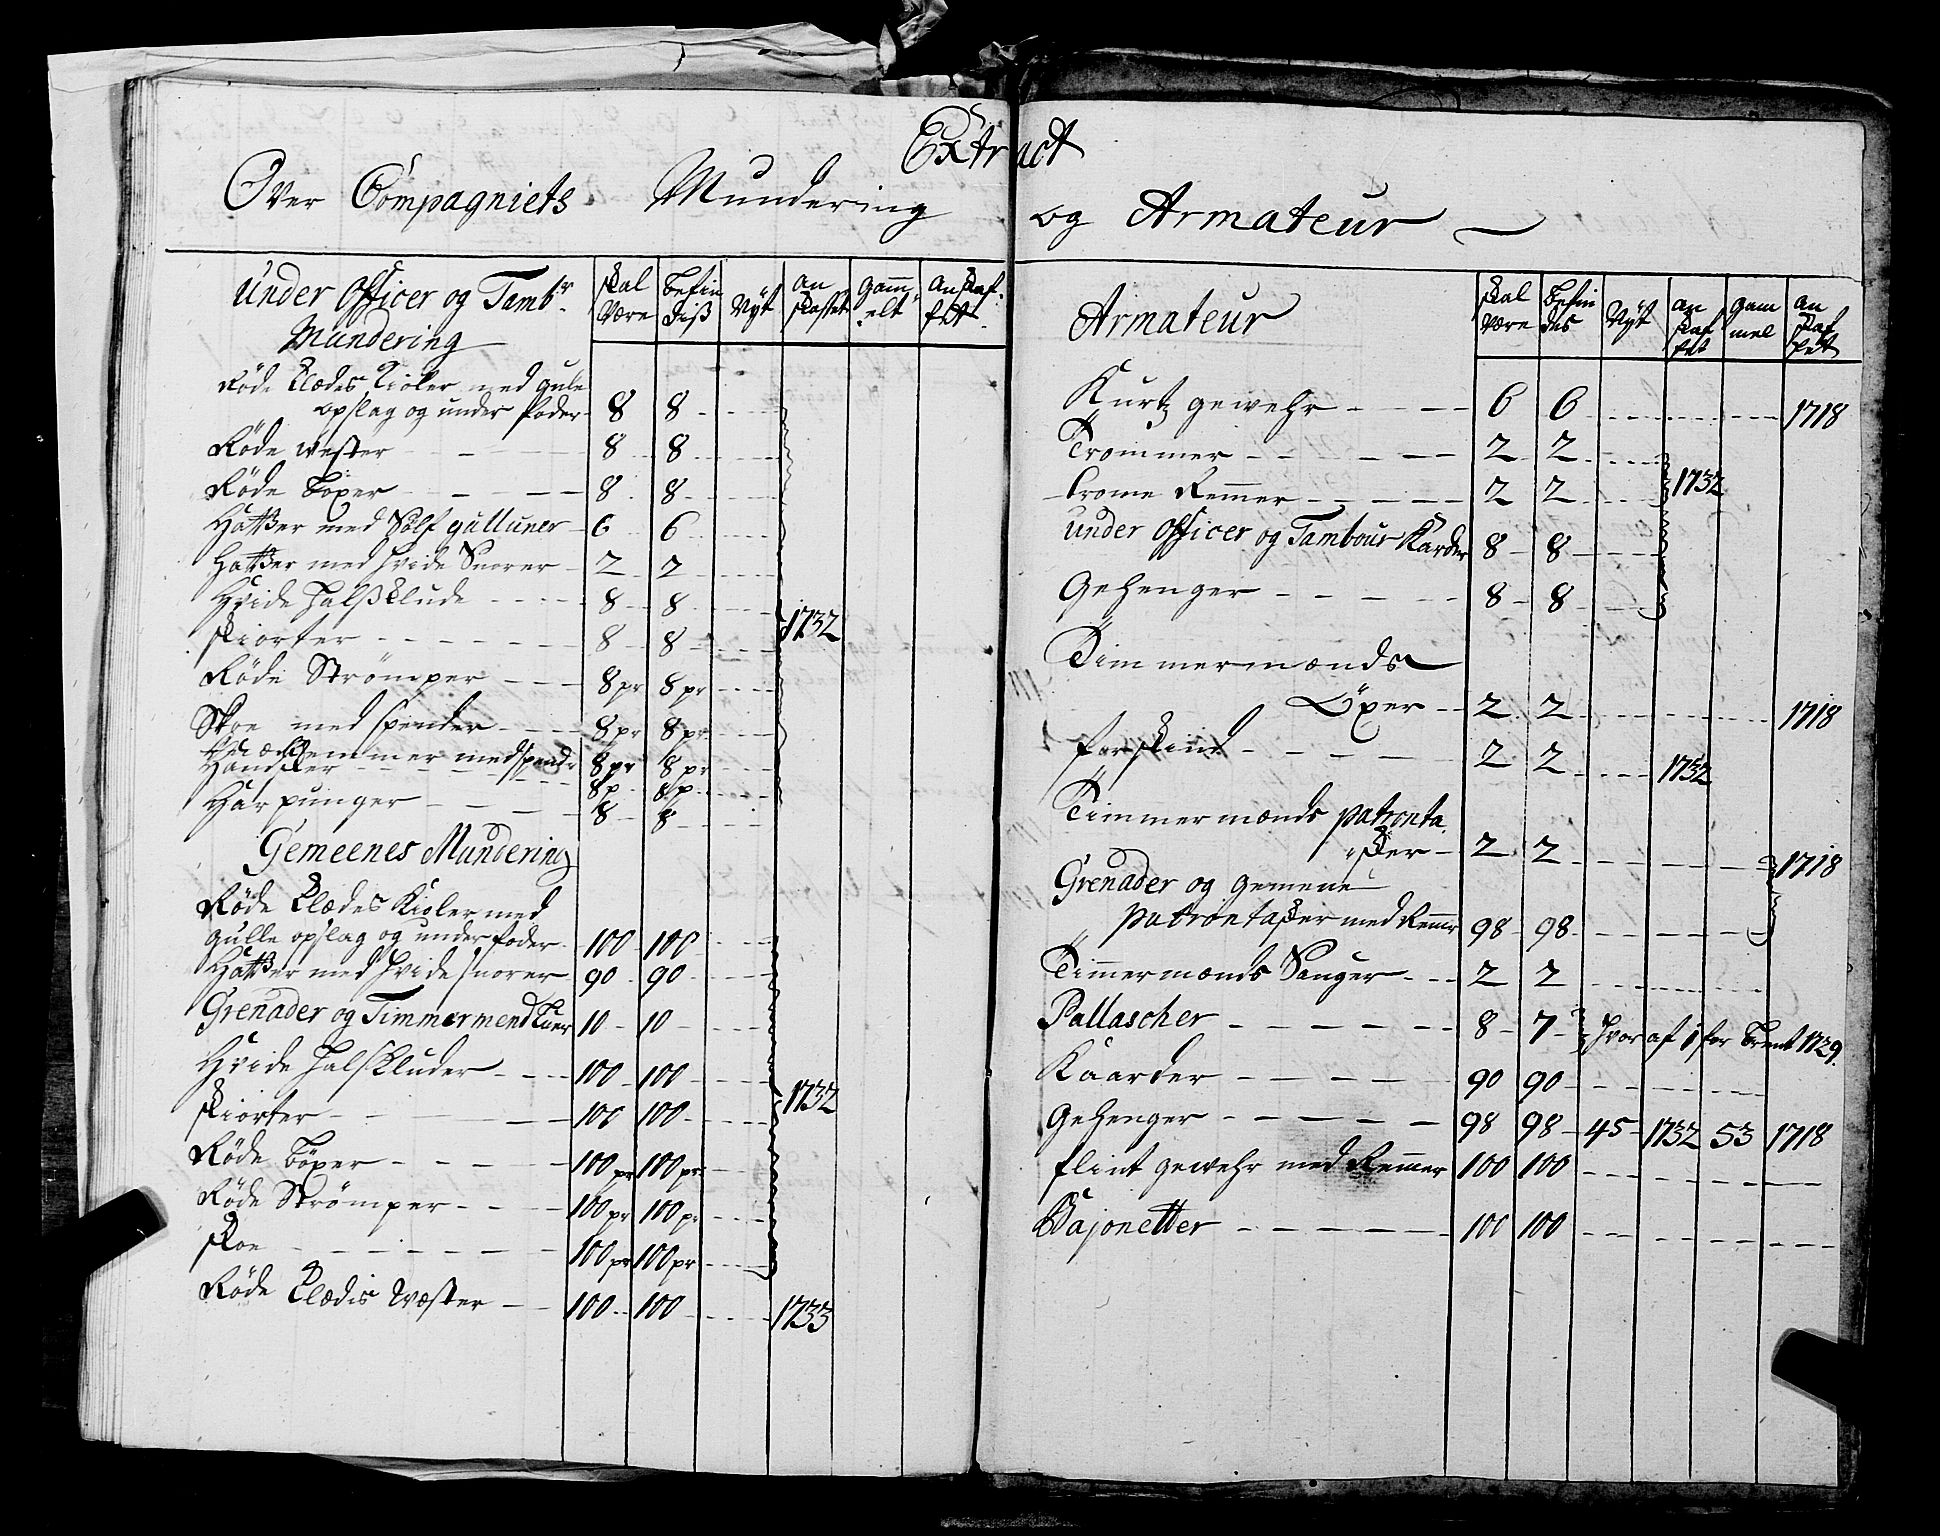 Extract
Over Compagniets Mundering og Armateur
Under Officer og Tambr
Mundering
skal Være
befin diß
Nÿt
an skaffet
gamm elt
An skaf fet
Røde Klædes Kioler med gule
opslag og under foder 8 8
Røde Wester 8 8
Røde böxer 8 8
Hatter med Sölf galluner 6 6
Hatter med hvide Snorer 2 2
Hvide halßklude 8 8 1732
skiorter 8 8
Røde Strömper 8 pr 8 pr
Skoe med spender 8 pr 8 pr
Knæ Remmer med spend: 8 pr 8 pr
Handsker 8 p 8 p
Haar punger 8 8
Gemeenes Mundering
Røde Klædes Kioler med
gulle opslag og under foder 100 100
Hatter med hvide snorer 90 90
Grenader og Timmermend Luer 10 10
Hvide halskluder 100 100
skiorter 100 100 1732
Røde böxer 100 pr 100 pr
Røde Strömper 100 pr 100 pr
skoe 100 pr 100 pr
Røde Klædis Wæster 100 100 1733
Armateur
skal Være
befin des
Nÿt
an skaf fet
gam mel
an skaf fet
Kurtz gewehr 6 6 1718
Trommer 2 2
trome Remmer 2 2 1732
Under Officer og Tambour Kaarder 8 8
Gehenger 8 8
Timmermænds
Öxer 2 2 1718
forskind 2 2 1732
Timmermænds patronta
sker 2 2 1718
Grenader og gemene
patrontasker med Remr 98 98
Timmermænds Sauger 2 2
Pallascher 8 7 hvor af 1 for brent 1729
Kaarder 90 90
Gehenger 98 98 45 1732 53 1718
flint gewehr med Remmer 100 100
Bajonetter 100 100